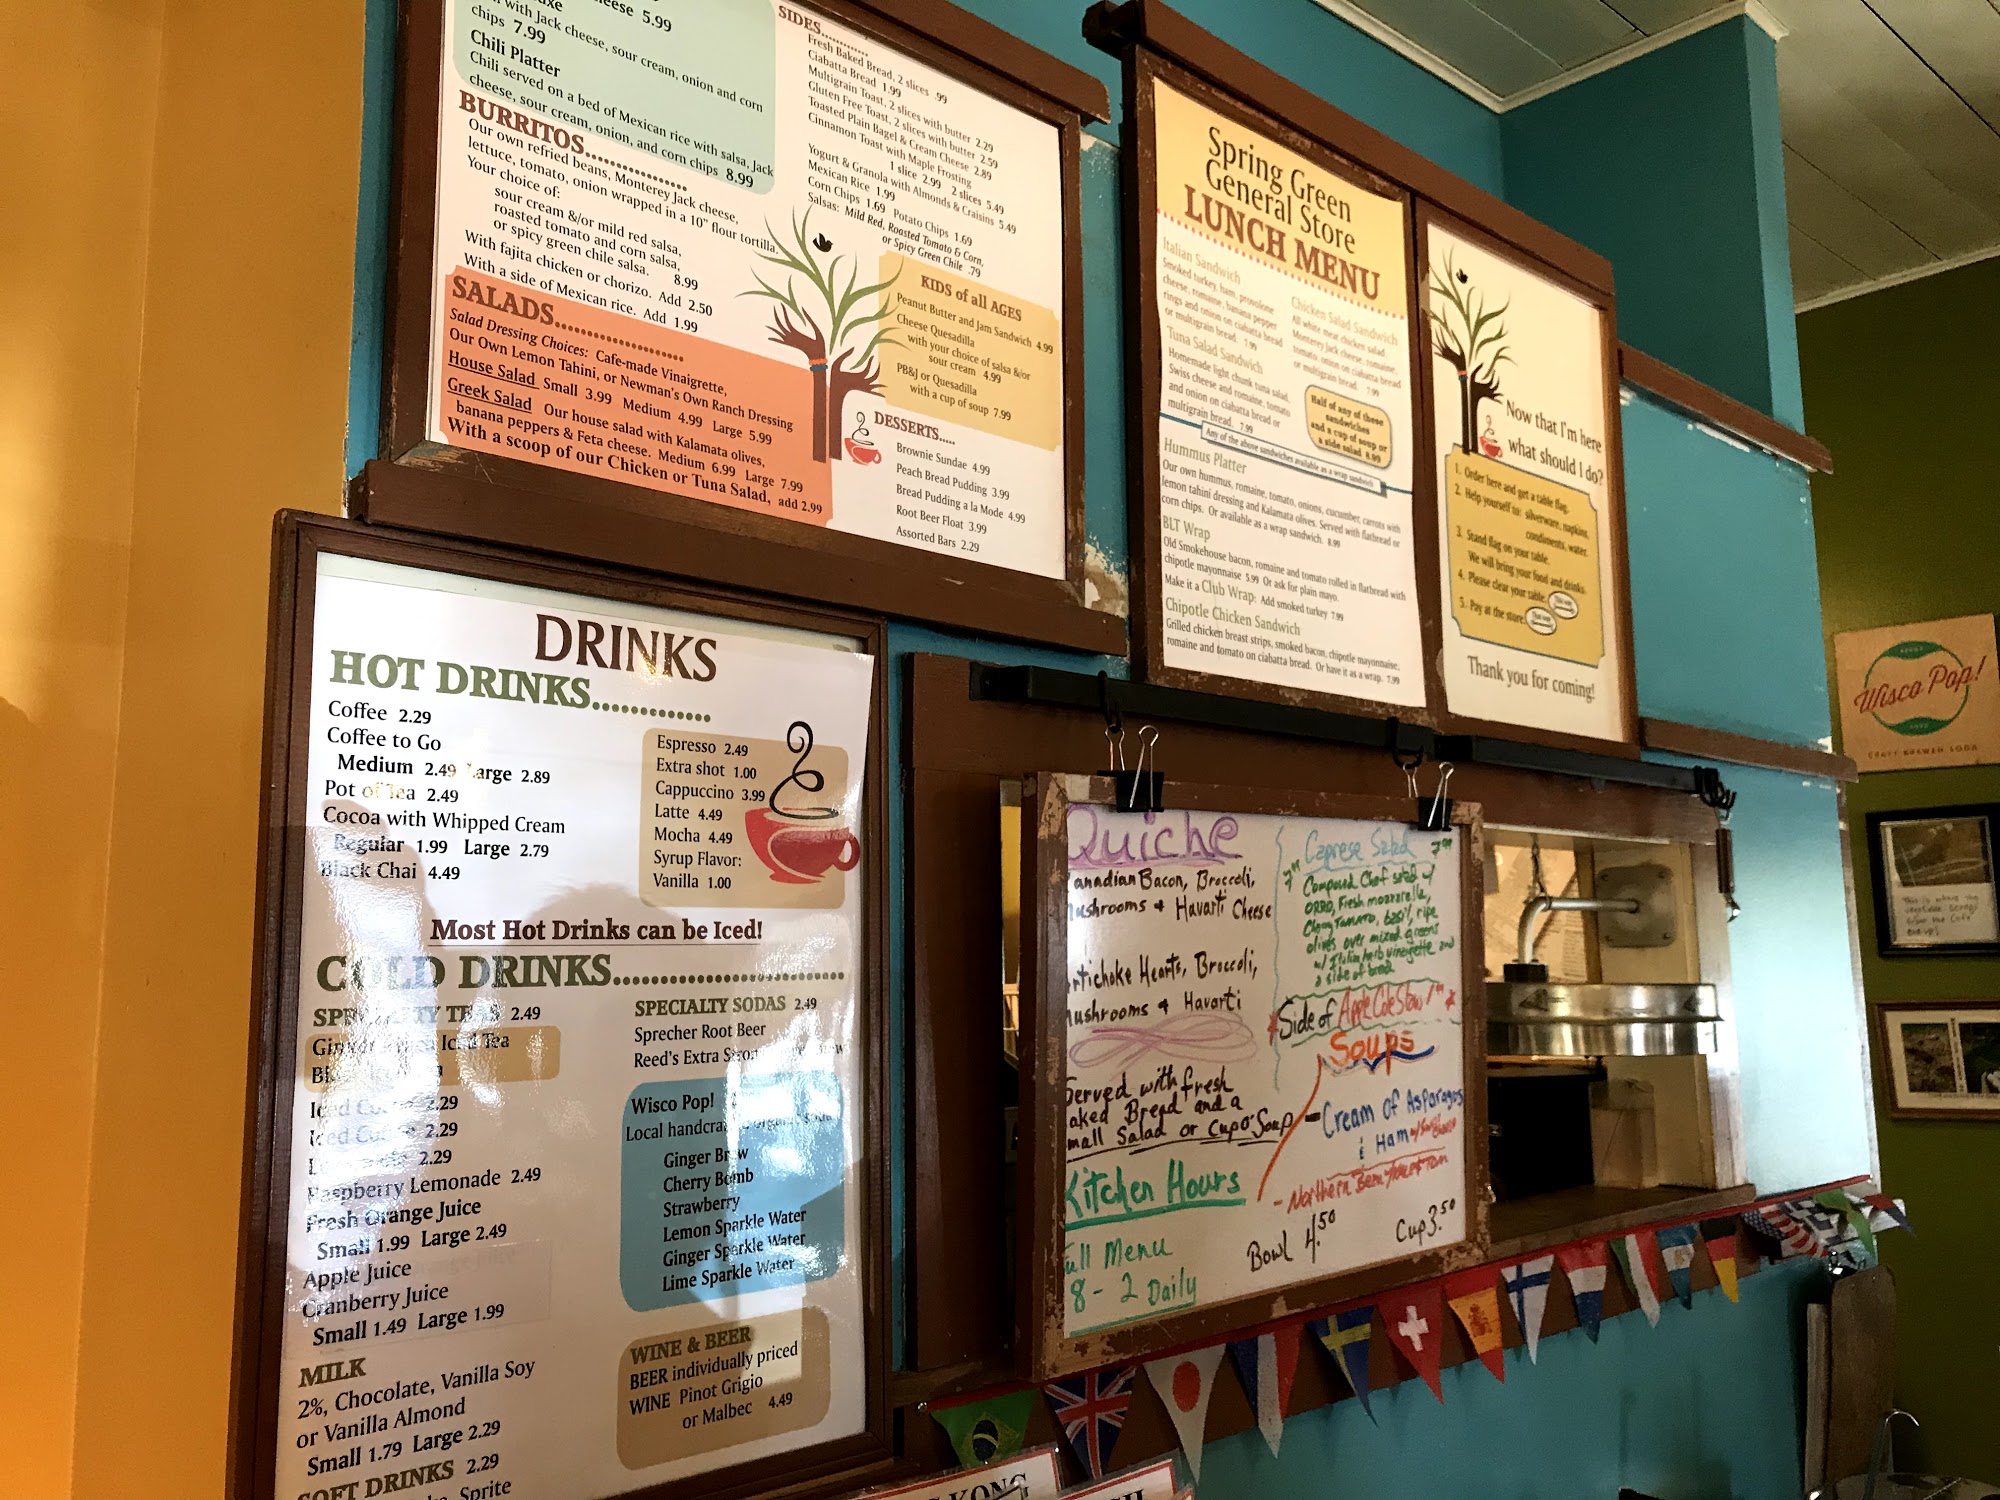 heese 5.99
with Jack cheese, sour cream, onion and corn
chips 7.99
Chili Platter
Chili served on a bed of Mexican rice with salsa, Jack
cheese, sour cream, onion, and corn chips 8.99
BURRITOS
Our own refried beans, Monterey Jack cheese,
lettuce, tomato, onion wrapped in a 10" flour tortilla.
Your choice of:
sour cream &/or mild red salsa,
roasted tomato and corn salsa,
or spicy green chile salsa. 8.99
With fajita chicken or chorizo. Add 2.50
With a side of Mexican rice. Add 1.99
SALADS
Salad Dressing Choices: Cafe-made Vinaigrette,
Our Own Lemon Tahini, or Newman's Own Ranch Dressing
House Salad Small 3.99 Medium 4.99 Large 5.99
Greek Salad Our house salad with Kalamata olives,
banana peppers & Feta cheese. Medium 6.99 Large 7.99
With a scoop of our Chicken or Tuna Salad, add 2.99
SIDES
Fresh Baked Bread, 2 slices .99
Ciabatta Bread 1.99
Multigrain Toast, 2 slices with butter 2.29
Gluten Free Toast, 2 slices with butter 2.59
Toasted Plain Bagel & Cream Cheese 2.89
Cinnamon Toast with Maple Frosting
1 slice 2.99 2 slices 5.49
Yogurt & Granola with Almonds & Craisins 5.49
Mexican Rice 1.99
Corn Chips 1.69 Potato Chips 1.69
Salsas: Mild Red, Roasted Tomato & Corn,
or Spicy Green Chile .79
KIDS of all AGES
Peanut Butter and Jam Sandwich 4.99
Cheese Quesadilla
with your choice of salsa &/or
sour cream 4.99
PB&J or Quesadilla
with a cup of soup 7.99
DESSERTS.....
Brownie Sundae 4.99
Peach Bread Pudding 3.99
Bread Pudding a la Mode 4.99
Root Beer Float 3.99
Assorted Bars 2.29
Spring Green
General Store
LUNCH MENU
Italian Sandwich
Smoked turkey, ham, provolone
cheese, romaine, banana pepper
rings and onion on ciabatta bread
or multigrain bread. 7.99
Tuna Salad Sandwich
Homemade light chunk tuna salad,
Swiss cheese and romaine, tomato
and onion on ciabatta bread or
multigrain bread. 7.99
Chicken Salad Sandwich
All white meat chicken salad,
Monterey Jack cheese, romaine,
tomato, onion on ciabatta bread
or multigrain bread. 7.99
Half of any of these
sandwiches
and a cup of soup or
a side salad 8.99
Any of the above sandwiches available as a wrap sandwich
Hummus Platter
Our own hummus, romaine, tomato, onions, cucumber, carrots with
lemon tahini dressing and Kalamata olives. Served with flatbread or
corn chips. Or available as a wrap sandwich. 8.99
BLT Wrap
Old Smokehouse bacon, romaine and tomato rolled in flatbread with
chipotle mayonnaise 5.99 Or ask for plain mayo.
Make it a Club Wrap: Add smoked turkey 7.99
Chipotle Chicken Sandwich
Grilled chicken breast strips, smoked bacon, chipotle mayonnaise,
romaine and tomato on ciabatta bread. Or have it as a wrap. 7.99
Now that I'm here
what should I do?
1. Order here and get a table flag.
2. Help yourself to: silverware, napkins,
condiments, water.
3. Stand flag on your table.
We will bring your food and drinks.
4. Please clear your table.
5. Pay at the store.
Thank you for coming!
DRINKS
HOT DRINKS
Coffee 2.29
Coffee to Go
Medium 2.49 Large 2.89
Pot of Tea 2.49
Cocoa with Whipped Cream
Regular 1.99 Large 2.79
Black Chai 4.49
Espresso 2.49
Extra shot 1.00
Cappuccino 3.99
Latte 4.49
Mocha 4.49
Syrup Flavor:
Vanilla 1.00
Most Hot Drinks can be Iced!
COLD DRINKS
SPECIALTY TEAS 2.49
Iced Tea
Iced 2.29
Iced 2.29
2.29
Raspberry Lemonade 2.49
Fresh Orange Juice
Small 1.99 Large 2.49
Apple Juice
Cranberry Juice
Small 1.49 Large 1.99
MILK
2%, Chocolate, Vanilla Soy
or Vanilla Almond
Small 1.79 Large 2.29
SOFT DRINKS 2.29
Sprite
SPECIALTY SODAS 2.49
Sprecher Root Beer
Reed's Extra
Wisco Pop!
Local
Ginger Brew
Cherry Bomb
Strawberry
Lemon Sparkle Water
Ginger Sparkle Water
Lime Sparkle Water
WINE & BEER
BEER individually priced
WINE Pinot Grigio
or Malbec 4.49
Quiche
Canadian Bacon, Broccoli,
Mushrooms & Havarti Cheese
Artichoke Hearts, Broccoli,
Mushrooms & Havarti
Served with fresh
Baked Bread and a
Small Salad or Cup O' Soup
Kitchen Hours
Full Menu
8 - 2 Daily
Caprese Salad 7.99
Composed Chef salad w/
Fresh mozzarella,
ripe
olives over mixed greens
vinaigrette and
a side of bread
Side of Apple Cole Slaw
Soups
- Cream of Asparagus
& Ham
- Northern Bean
Bowl 4.50 Cup 3.50
Wisco Pop!
CRAFT BREWED SODA
KONG